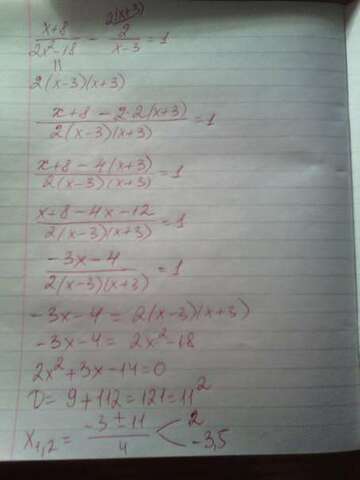 2(x+3)
(x+8)/(2x²-18) - 2/(x-3) = 1
||
2(x-3)(x+3)
(x+8-2·2(x+3))/(2(x-3)(x+3)) = 1
(x+8-4(x+3))/(2(x-3)(x+3)) = 1
(x+8-4x-12)/(2(x-3)(x+3)) = 1
(-3x-4)/(2(x-3)(x+3)) = 1
-3x-4 = 2(x-3)(x+3)
-3x-4 = 2x²-18
2x²+3x-14=0
D= 9+112=121=11²
x₁,₂ = (-3±11)/4 < 2
-3,5